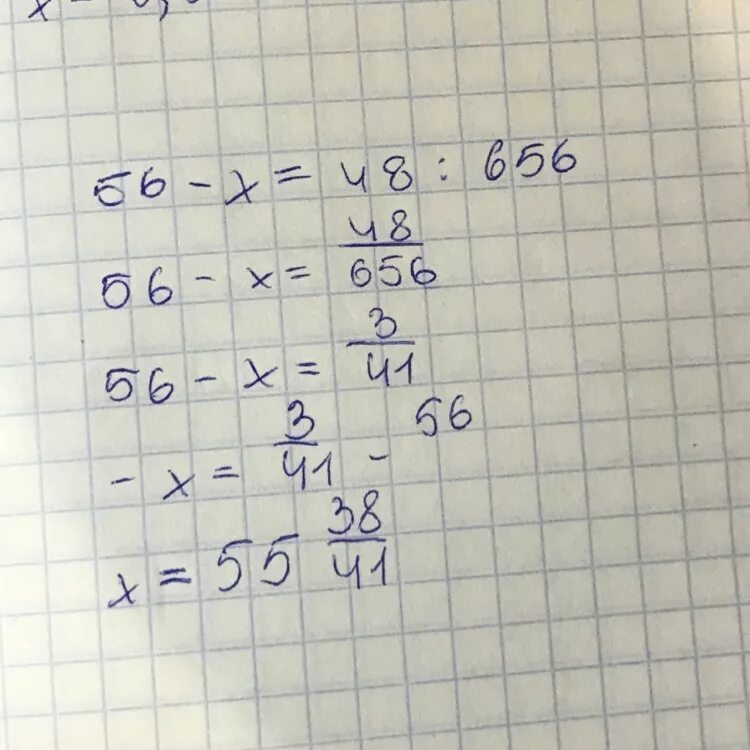 56 - x = 48 : 656
56 - x = 48/656
56 - x = 3/41
- x = 3/41 - 56
x = 55 38/41